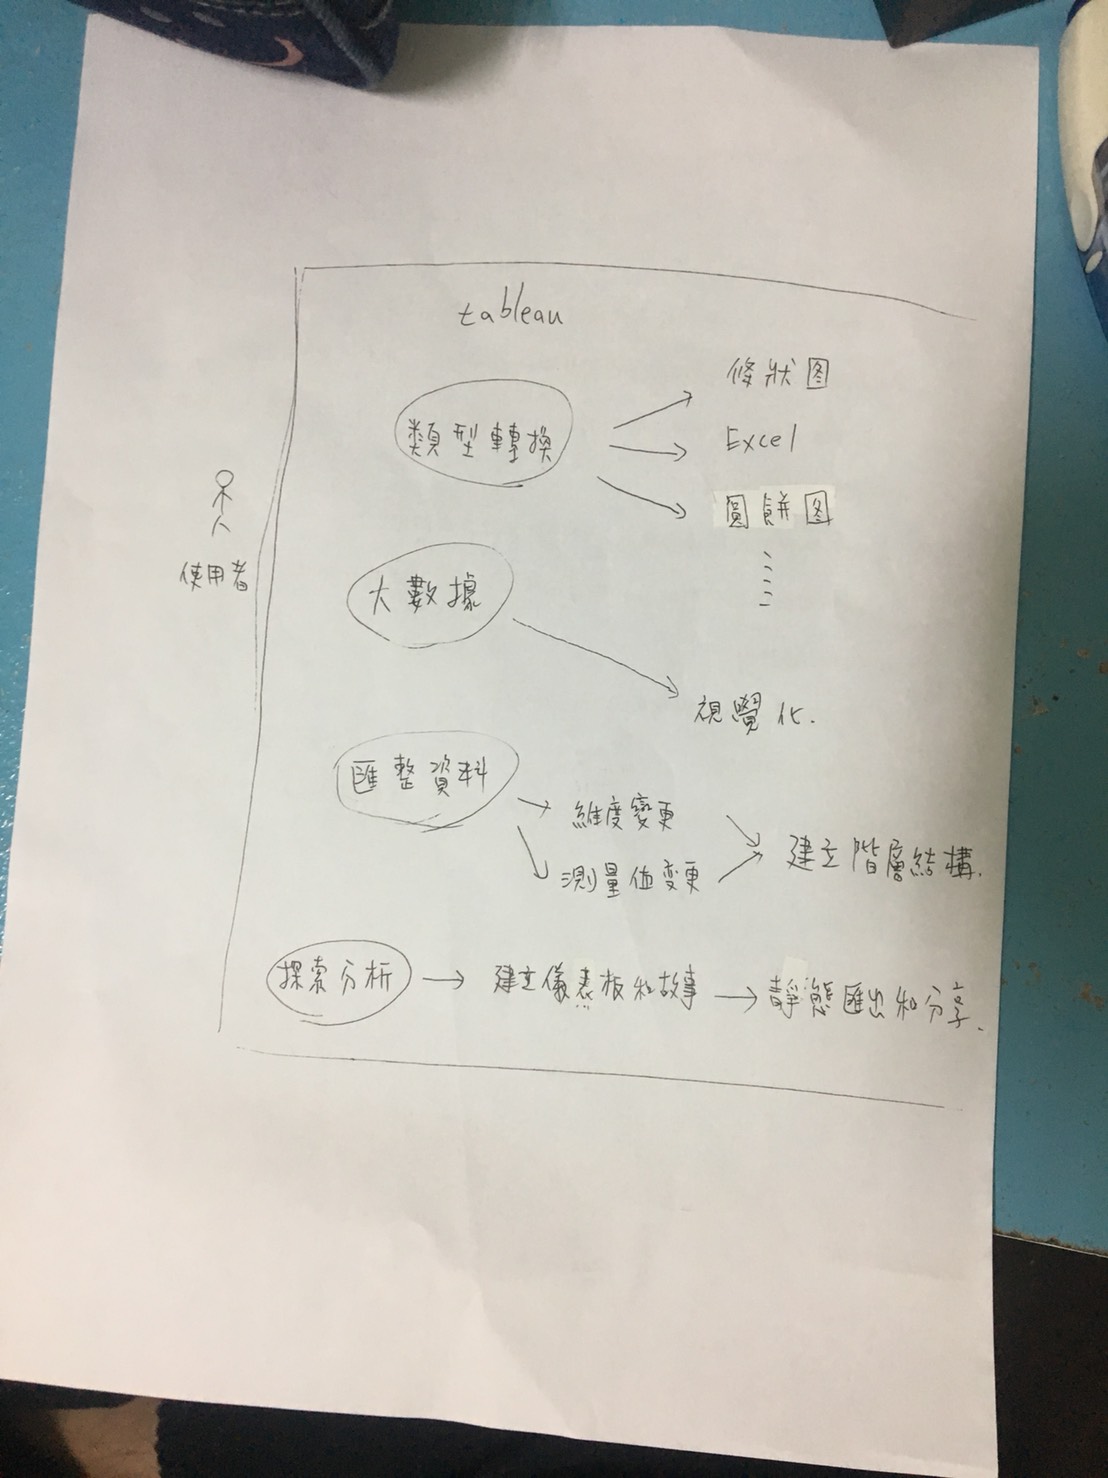 tableau
類型轉換
條狀图
Excel
圓餅图
使用者
大數據
視覺化.
匯整資料
維度變更
測量值变更
建立階層結構.
探索分析
建立儀表板和故事
靜態匯出和分享.